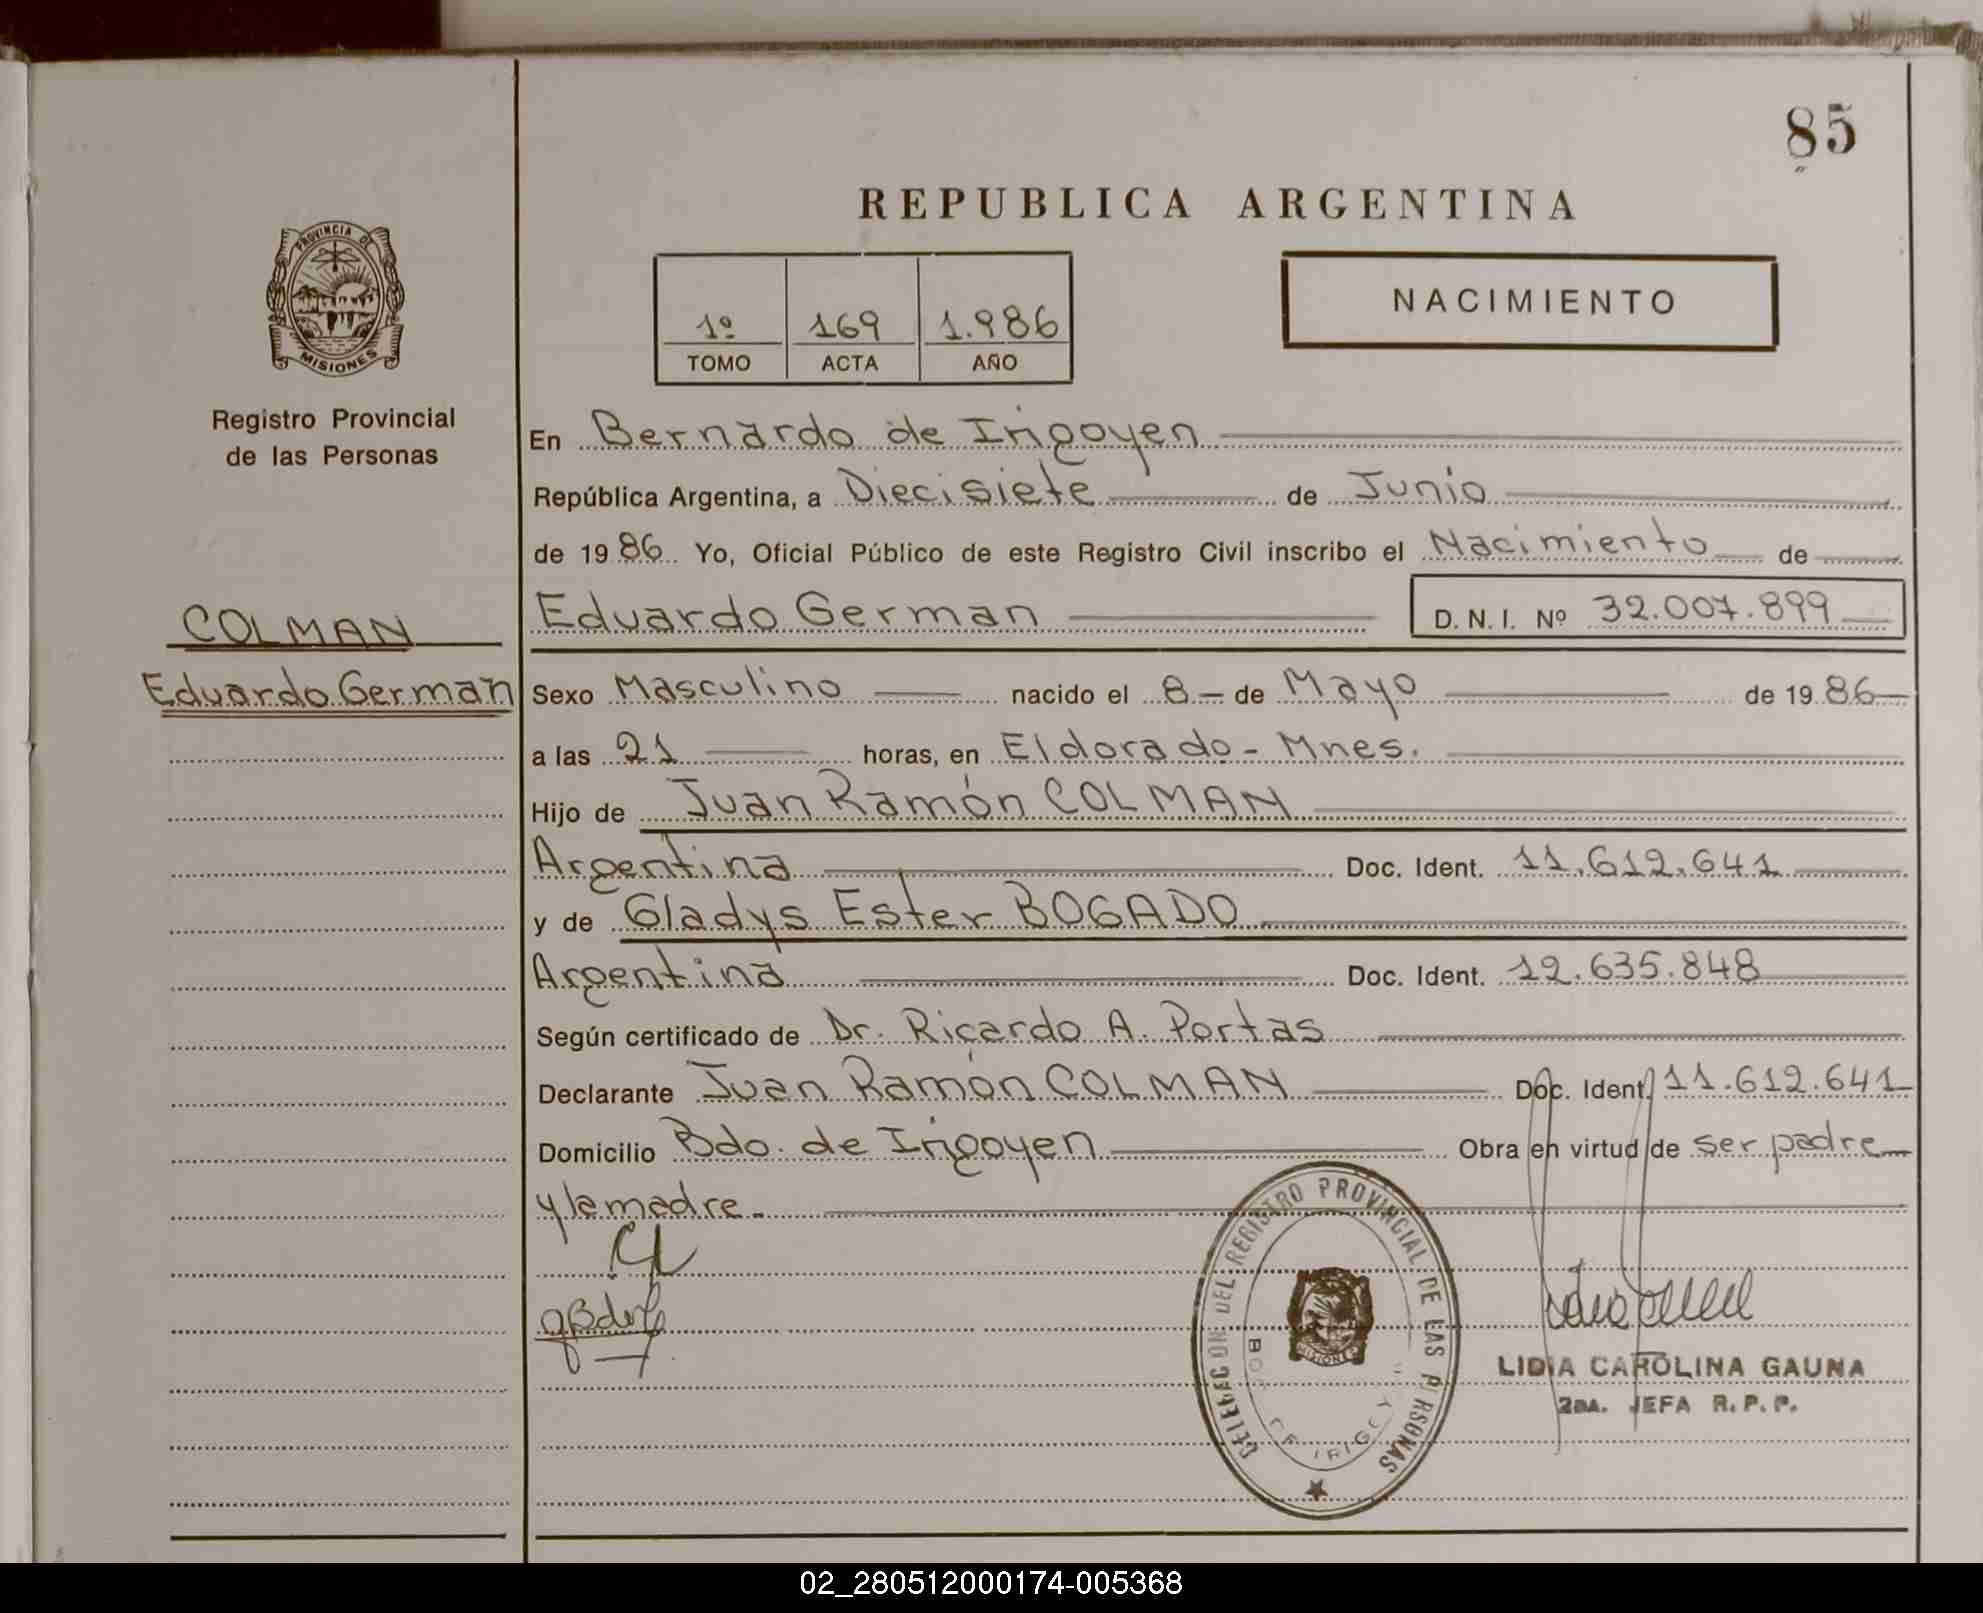 85
REPUBLICA ARGENTINA
PROVINCIA DE
MISIONES
Registro Provincial
de las Personas
1º 169 1.986
TOMO ACTA AÑO
NACIMIENTO
En Bernardo de Irigoyen
República Argentina, a Diecisiete de Junio
de 1986 Yo, Oficial Público de este Registro Civil inscribo el Nacimiento de
COLMAN
Eduardo German
Eduardo German D. N. I. Nº 32.007.899
Sexo Masculino nacido el 8 de Mayo de 1986
a las 21 horas, en Eldorado - Mnes.
Hijo de Juan Ramón COLMAN
Argentina Doc. Ident. 11.612.641
y de Gladys Ester BOGADO
Argentina Doc. Ident. 12.635.848
Según certificado de Dr. Ricardo A. Portas
Declarante Juan Ramón COLMAN Doc. Ident. 11.612.641
Domicilio Bdo. de Irigoyen Obra en virtud de ser padre
y la madre.
DELEGACION DEL REGISTRO PROVINCIAL DE LAS PERSONAS
MISIONES
LIDIA CAROLINA GAUNA
2DA. JEFA R. P. P.
02_280512000174-005368